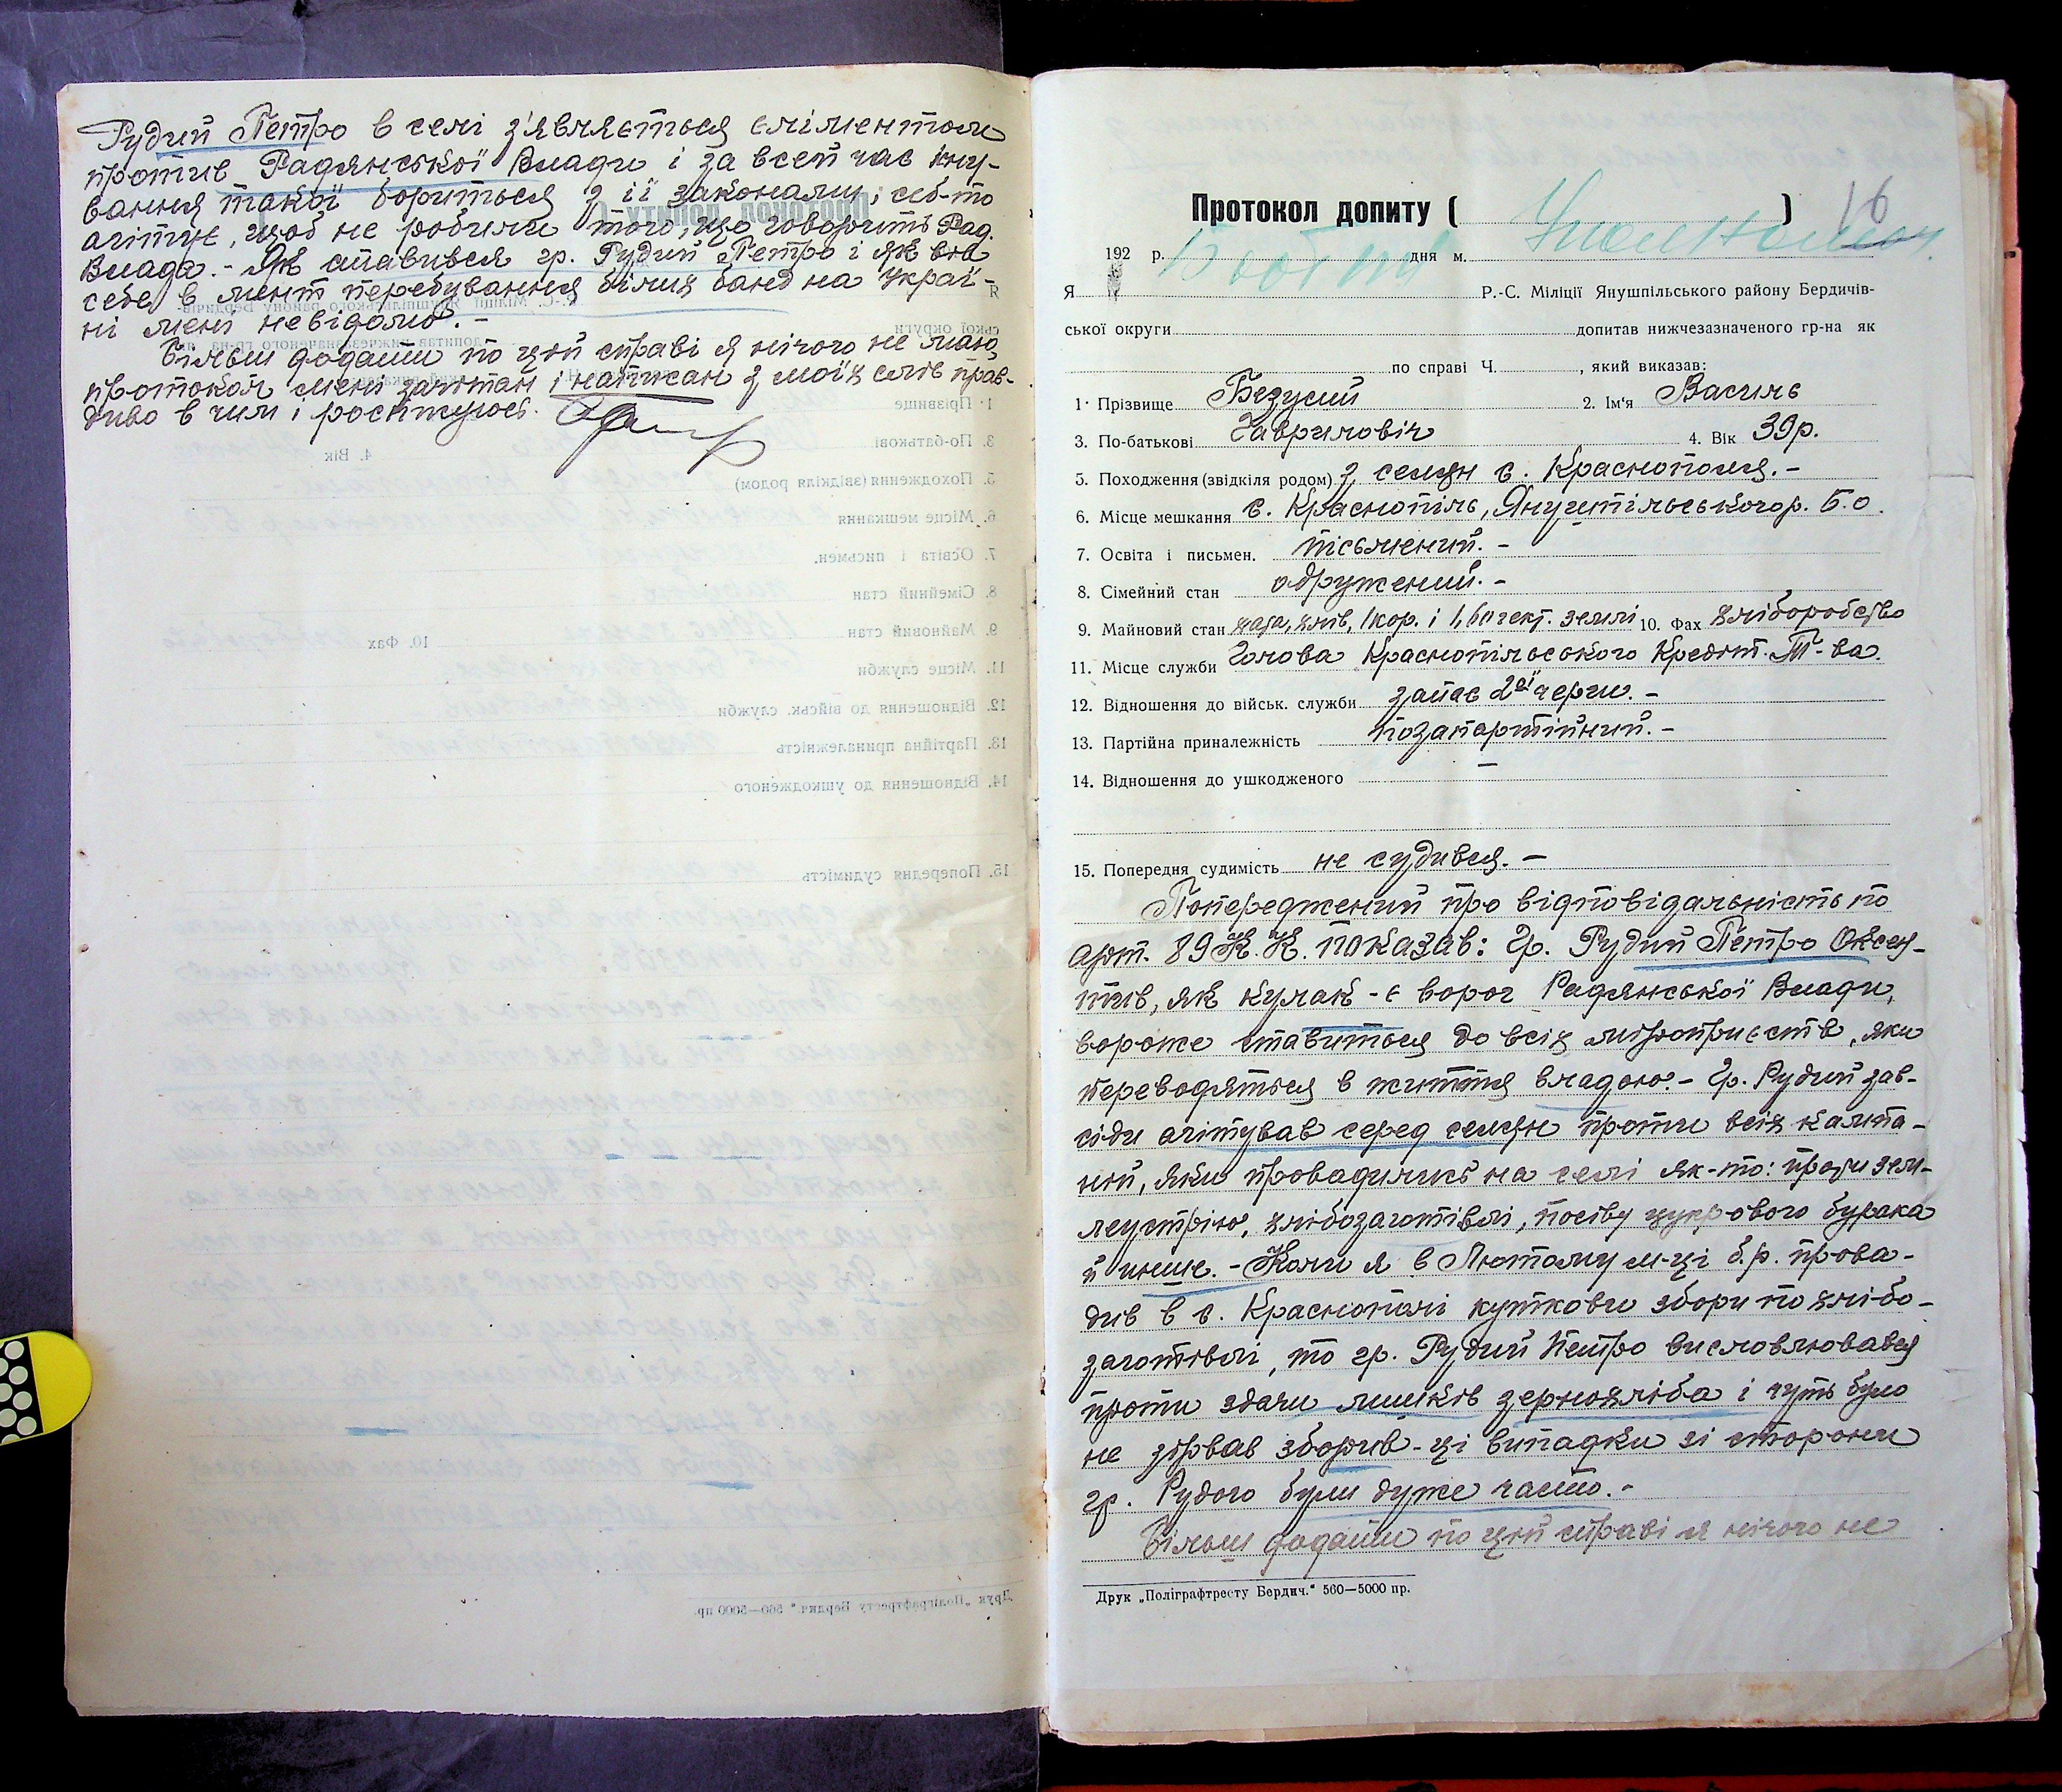 Рудий Петро в селі з'являється єліментом
против Радянської Влади і за всей час існу-
вання такої бориться з її законами, себ-то
агітує, щоб не робили того, що говорить Рад.
Влада. - Як ставився гр. Рудий Петро і як вів
себе в мент перебування білих банд на Украї-
ні мені невідомо. -
Більш додати по цій справі я нічого не маю,
протокол мені зачитан і написан з моїх слів прав-
диво в чим і росписуюсь.
Протокол допиту ( ) 16
192 р. дня м.
Я Р.-С. Міліції Янушпільського району Бердичів-
ської округи допитав нижчезазначеного гр-на як
по справі Ч. , який виказав:
1. Прізвище Безусий 2. Ім'я Василь
3. По-батькові Гаврилович 4. Вік 39 р.
5. Походження (звідкіля родом) з селян с. Краснополя. -
6. Місце мешкання с. Краснопіль, Янушпільського р. Б.О.
7. Освіта і письмен. письмений. -
8. Сімейний стан одружений. -
9. Майновий стан хата, хлів, 1 кор. і 1,60 гект. землі 10. Фах хліборобство
11. Місце служби Голова Краснопільського Кредит. Т-ва.
12. Відношення до військ. служби запас 2ої черги. -
13. Партійна приналежність позапартійний. -
14. Відношення до ушкодженого —
15. Попередня судимість не судився. -
Попереджений про відповідальність по
арт. 89 К.К. показав: Гр. Рудий Петро Оксен-
тів, як кулак - є ворог Радянської Влади,
вороже ставиться до всіх міроприємств, яки
переводяться в життя владою. - Гр. Рудий зав-
сіди агітував серед селян проти всіх кампа-
ній, яки провадились на селі як-то: проти зем-
леустрію, хлібозаготівлі, посіву цукрового бурака
й инше. - Коли я в Лютому м-ці б.р. прова-
див в с. Краснополі куткови збори по хлібо-
заготівлі, то гр. Рудий Петро висловлювався
проти здачи лишків зернохліба і чуть було
не зірвав зборів - ці випадки зі сторони
гр. Рудого були дуже часто. -
Більш додати по цій справі я нічого не
Друк „Поліграфтресту Бердич.“ 560—5000 пр.